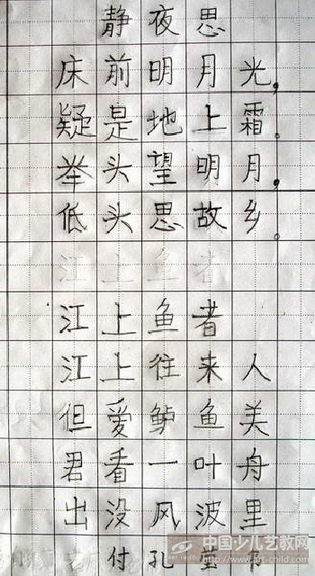 静夜思
床前明月光,
疑是地上霜。
举头望明月,
低头思故乡。
江上鱼者
江上鱼者
江上往来人
但爱鲈鱼美
君看一叶舟
出没风波里
付孔莹
中国少儿艺教网
www.art-child.com